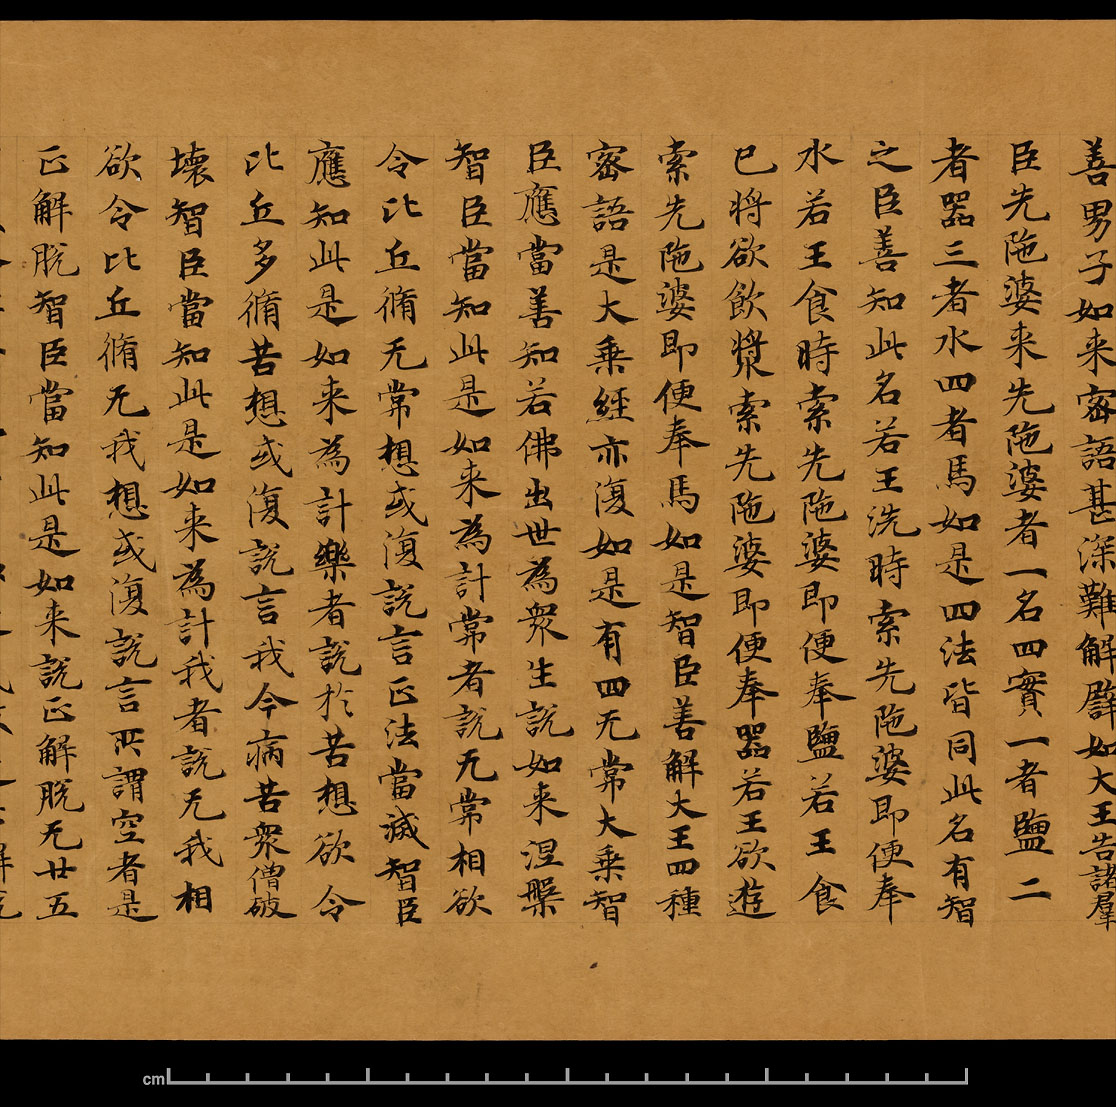 善男子如来密語甚深難解譬如大王告諸羣
臣先陁婆来先陁婆者一名四實一者鹽二
者器三者水四者馬如是四法皆同此名有智
之臣善知此名若王洗時索先陁婆即便奉
水若王食時索先陁婆即便奉鹽若王食
已將欲飲漿索先陁婆即便奉器若王欲遊
索先陁婆即便奉馬如是智臣善解大王四種
密語是大乗經亦復如是有四无常大乗智
臣應當善知若佛出世為衆生說如来涅槃
智臣當知此是如来為計常者說无常相欲
令比丘脩无常想或復說言正法當滅智臣
應知此是如来為計樂者說於苦想欲令
比丘多脩苦想或復說言我今病苦衆僧破
壞智臣當知此是如来為計我者說无我相
欲令比丘脩无我想或復說言所謂空者是
正解脫智臣當知此是如来說正解脫无廿五